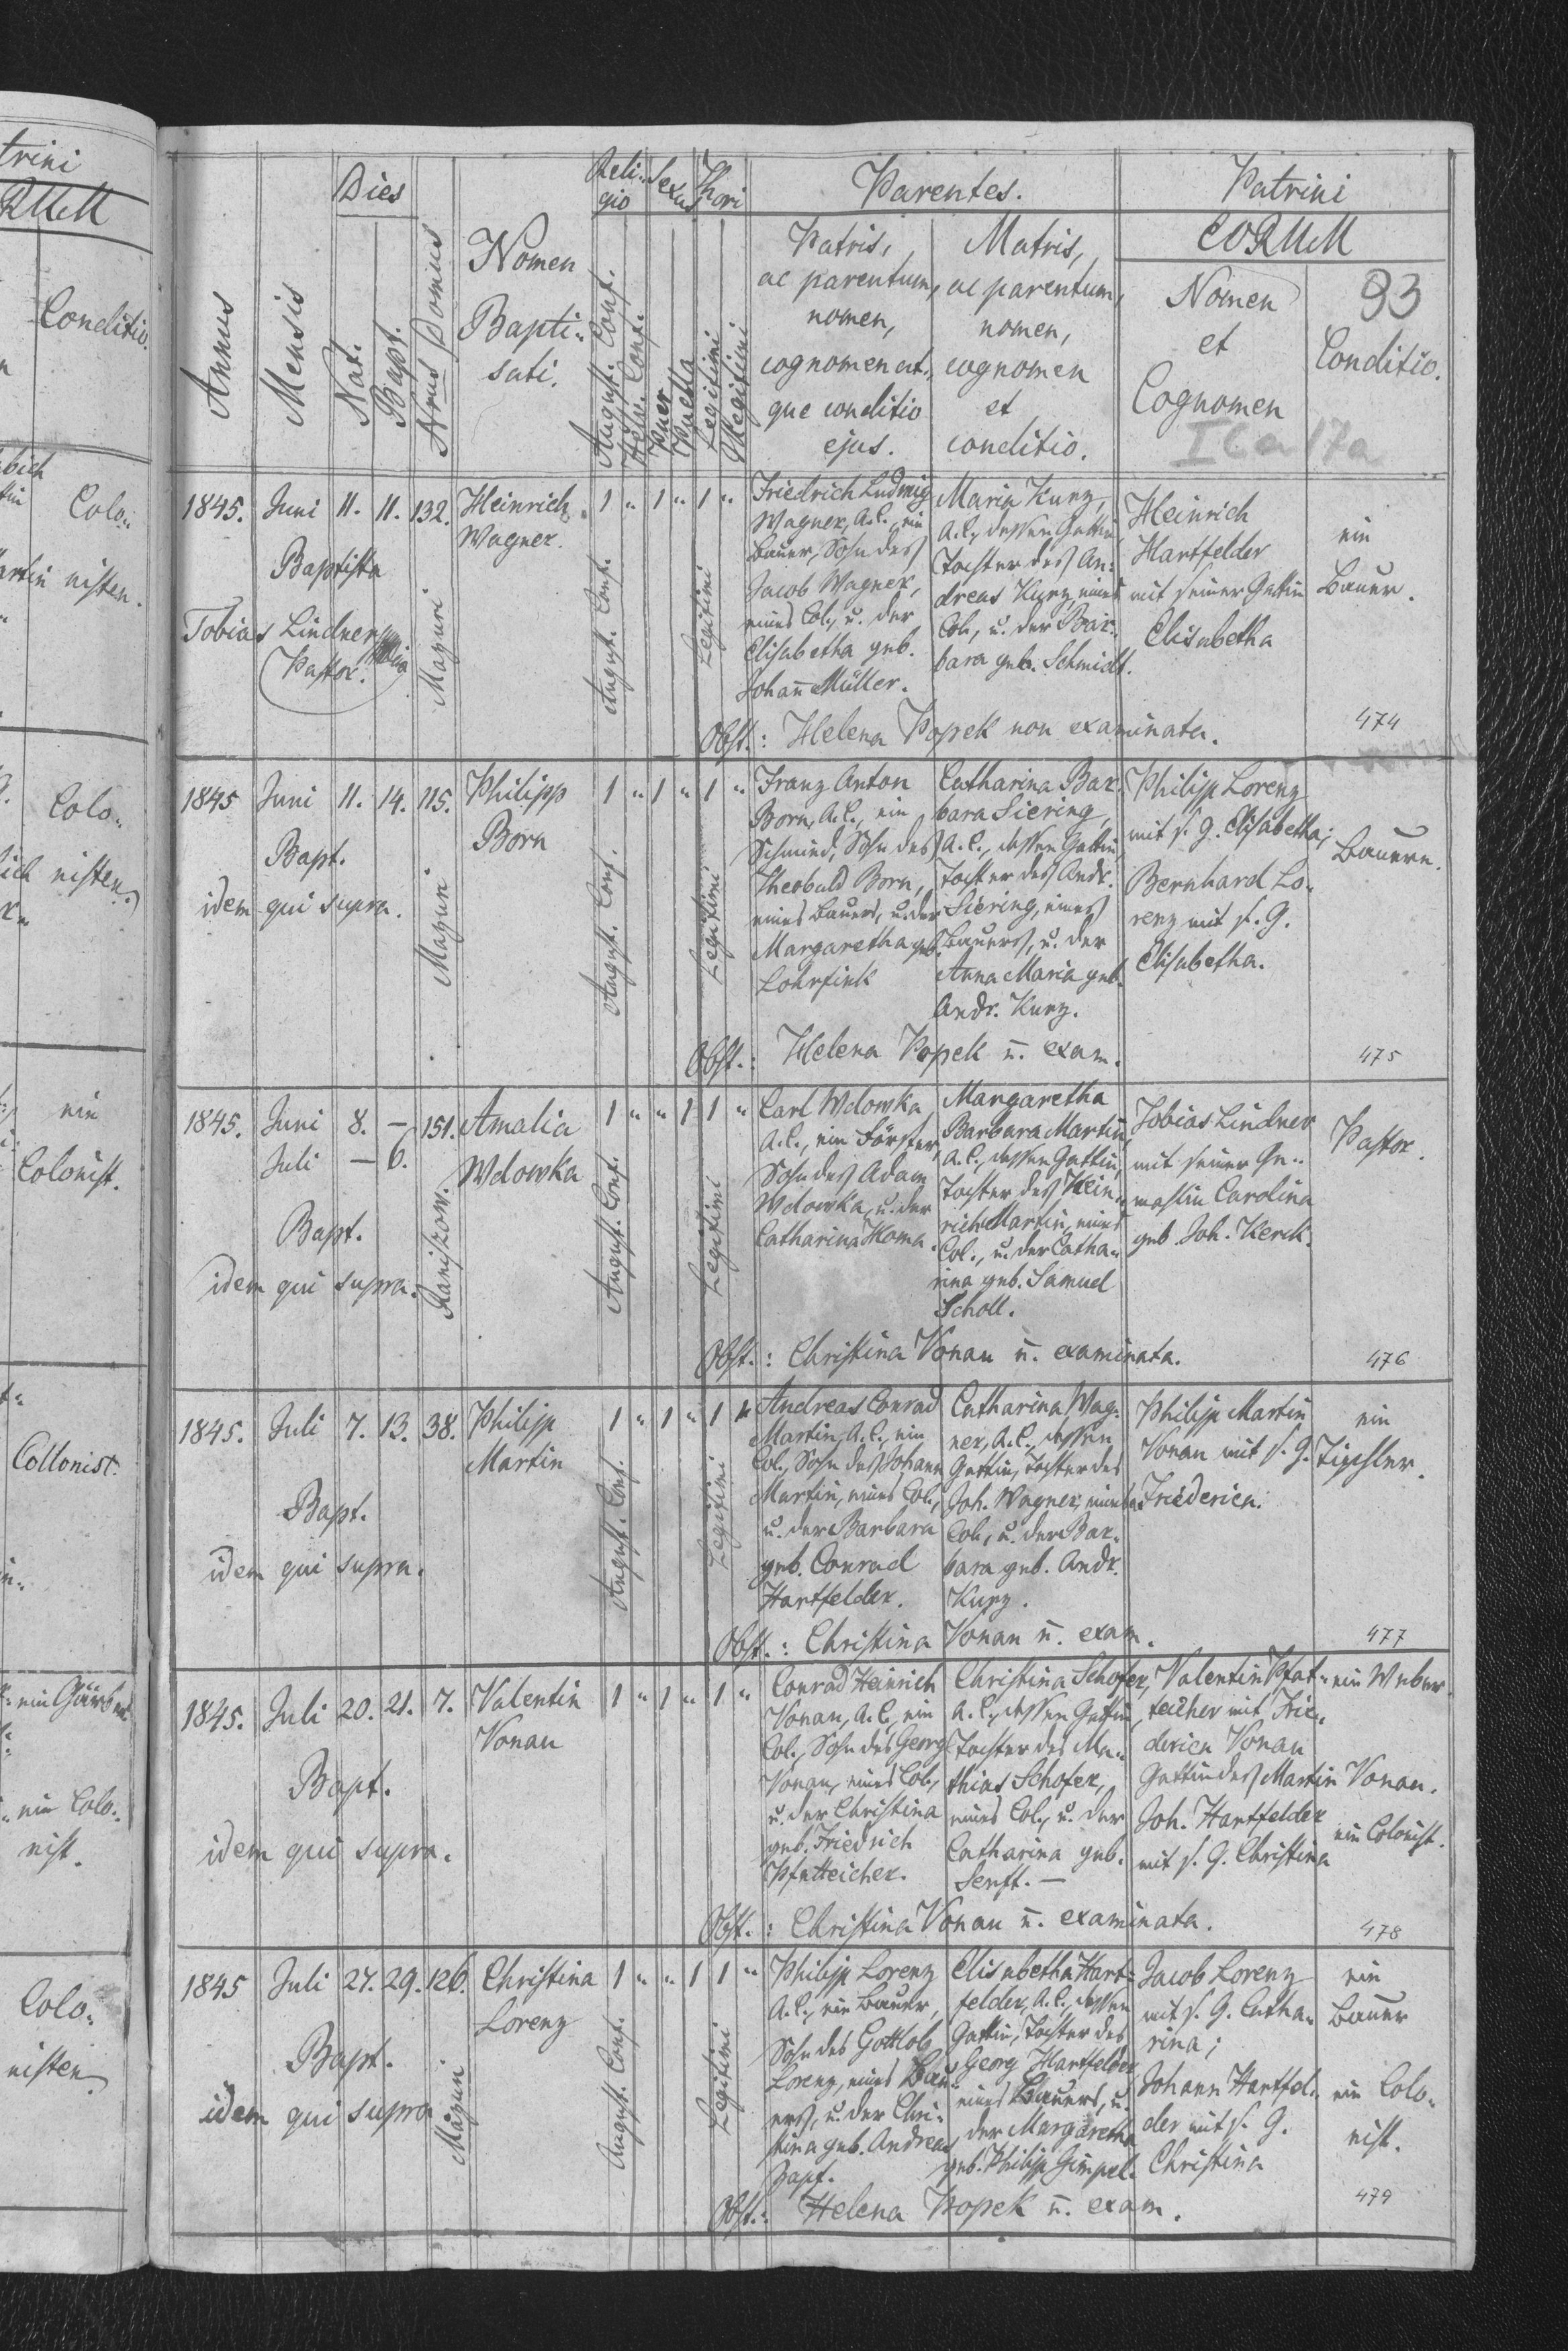 trini
RUM
Conditio.
bich
Colo-
nisten.
Colo-
nisten.
ein
Colonist.
Collonist.
ein Gärber
ein Colo-
nist.
Colo-
nisten
Dies
Reli-
gio
Sexus
Thori
Parentes.
Patrini
EORUM
Annus
Mensis
Nat.
Bapt.
Nrus Domus
Nomen
Bapti-
sati.
August. Conf.
Helv. Conf.
Puer
Puella
Legitimi
Illegitimi
Patris,
ac parentum,
nomen,
cognomen at-
que conditio
ejus.
Matris,
ac parentum,
nomen,
cognomen
et
conditio.
Nomen
et
Cognomen
93
Conditio.
1845. Juni 11. 11. 132.
Baptista
Tobias Lindner
Pastor.
Mazuri
Heinrich
Wagner.
1 " 1 " 1 "
August. Conf.
Legitimi
Friedrich Ludwig
Wagner, A.C., ein
Bauer, Sohn des
Jacob Wagner,
eines Col., u. der
Elisabetha geb.
Johan̄ Müller.
Maria Kurz,
A.C., dessen Gattin,
Tochter des An-
dreas Kurz, eines
Col., u. der Bar-
bara geb. Schmidt.
Heinrich
Hartfelder
mit seiner Gattin
Elisabetha
ein
Bauer.
Obst.: Helena Popek non examinata.
474
1845 Juni 11. 14. 115.
Bapt.
idem qui supra.
Mazuri
Philipp
Born
1 " 1 " 1 "
August. Conf.
Legitimi
Franz Anton
Born, A.C., ein
Schmied, Sohn des
Theobald Born,
eines Bauers, u. der
Margaretha geb.
Lohrfink
Catharina Bar-
bara Siering,
A.C., dessen Gattin,
Tochter des Andr.
Siering, eines
Bauers, u. der
Anna Maria geb.
Andr. Kurz.
Philipp Lorenz
mit s. G. Elisabetha;
Bernhard Lo-
renz mit s. G.
Elisabetha.
Bauern.
Obst.: Helena Popek n̄. exam.
475
1845. Juni 8. — 151.
Juli — 6.
Bapt.
idem qui supra.
Raniszow.
Amalia
Wdowka
1 " " 1 1 "
August. Conf.
Legitimi
Carl Wdowka,
A.C., ein Förster,
Sohn des Adam
Wdowka, u. der
Catharina Homa.
Margaretha
Barbara Martin,
A.C., dessen Gattin,
Tochter des Hein-
rich Martin, eines
Col., u. der Catha-
rina geb. Samuel
Scholl.
Tobias Lindner
mit seiner Ge-
mahlin Carolina
geb. Joh. Kerck.
Pastor.
Obst.: Christina Vonau n̄. examinata.
476
1845. Juli 7. 13. 38.
Bapt.
idem qui supra.
Philipp
Martin
1 " 1 " 1 "
August. Conf.
Legitimi
Andreas Conrad
Martin, A.C., ein
Col., Sohn des Johann
Martin, eines Col.,
u. der Barbara
geb. Conrad
Hartfelder.
Catharina Wag-
ner, A.C., dessen
Gattin, Tochter des
Joh. Wagner, eines
Col., u. der Bar-
bara geb. Andr.
Kurz.
Philipp Martin
Vonau mit s. G.
Friederica.
ein
Tischler.
Obst.: Christina Vonau n̄. exam.
477
1845. Juli 20. 21. 7.
Bapt.
idem qui supra.
Valentin
Vonau
1 " 1 " 1 "
Conrad Heinrich
Vonau, A.C., ein
Col., Sohn des Georg
Vonau, eines Col.,
u. der Christina
geb. Friedrich
Pfatteicher.
Christina Schofer,
A.C., dessen Gattin,
Tochter des Ma-
thias Schofer,
eines Col., u. der
Catharina geb.
Senft. —
Valentin Pfat-
teicher mit Frie-
derica Vonau
Gattin des Martin Vonau.
Joh. Hartfelder
mit s. G. Christina
ein Weber.
ein Colonist.
Obst.: Christina Vonau n̄. examinata.
478
1845 Juli 27. 29. 126.
Bapt.
idem qui supra
Mazuri
Christina
Lorenz
1 " " 1 1 "
August. Conf.
Legitimi
Philipp Lorenz
A.C., ein Bauer,
Sohn des Gottlob
Lorenz, eines Bau-
ers, u. der Chri-
stina geb. Andreas
Zapf.
Elisabetha Hart-
felder, A.C., dessen
Gattin, Tochter des
Georg Hartfelder
eines Bauers, u.
der Margaretha
geb. Philipp Gimpel.
Jacob Lorenz
mit s. G. Catha-
rina;
Johann Hartfel-
der mit s. G.
Christina
ein
Bauer
ein Colo-
nist.
Obst.: Helena Popek n̄. exam.
479